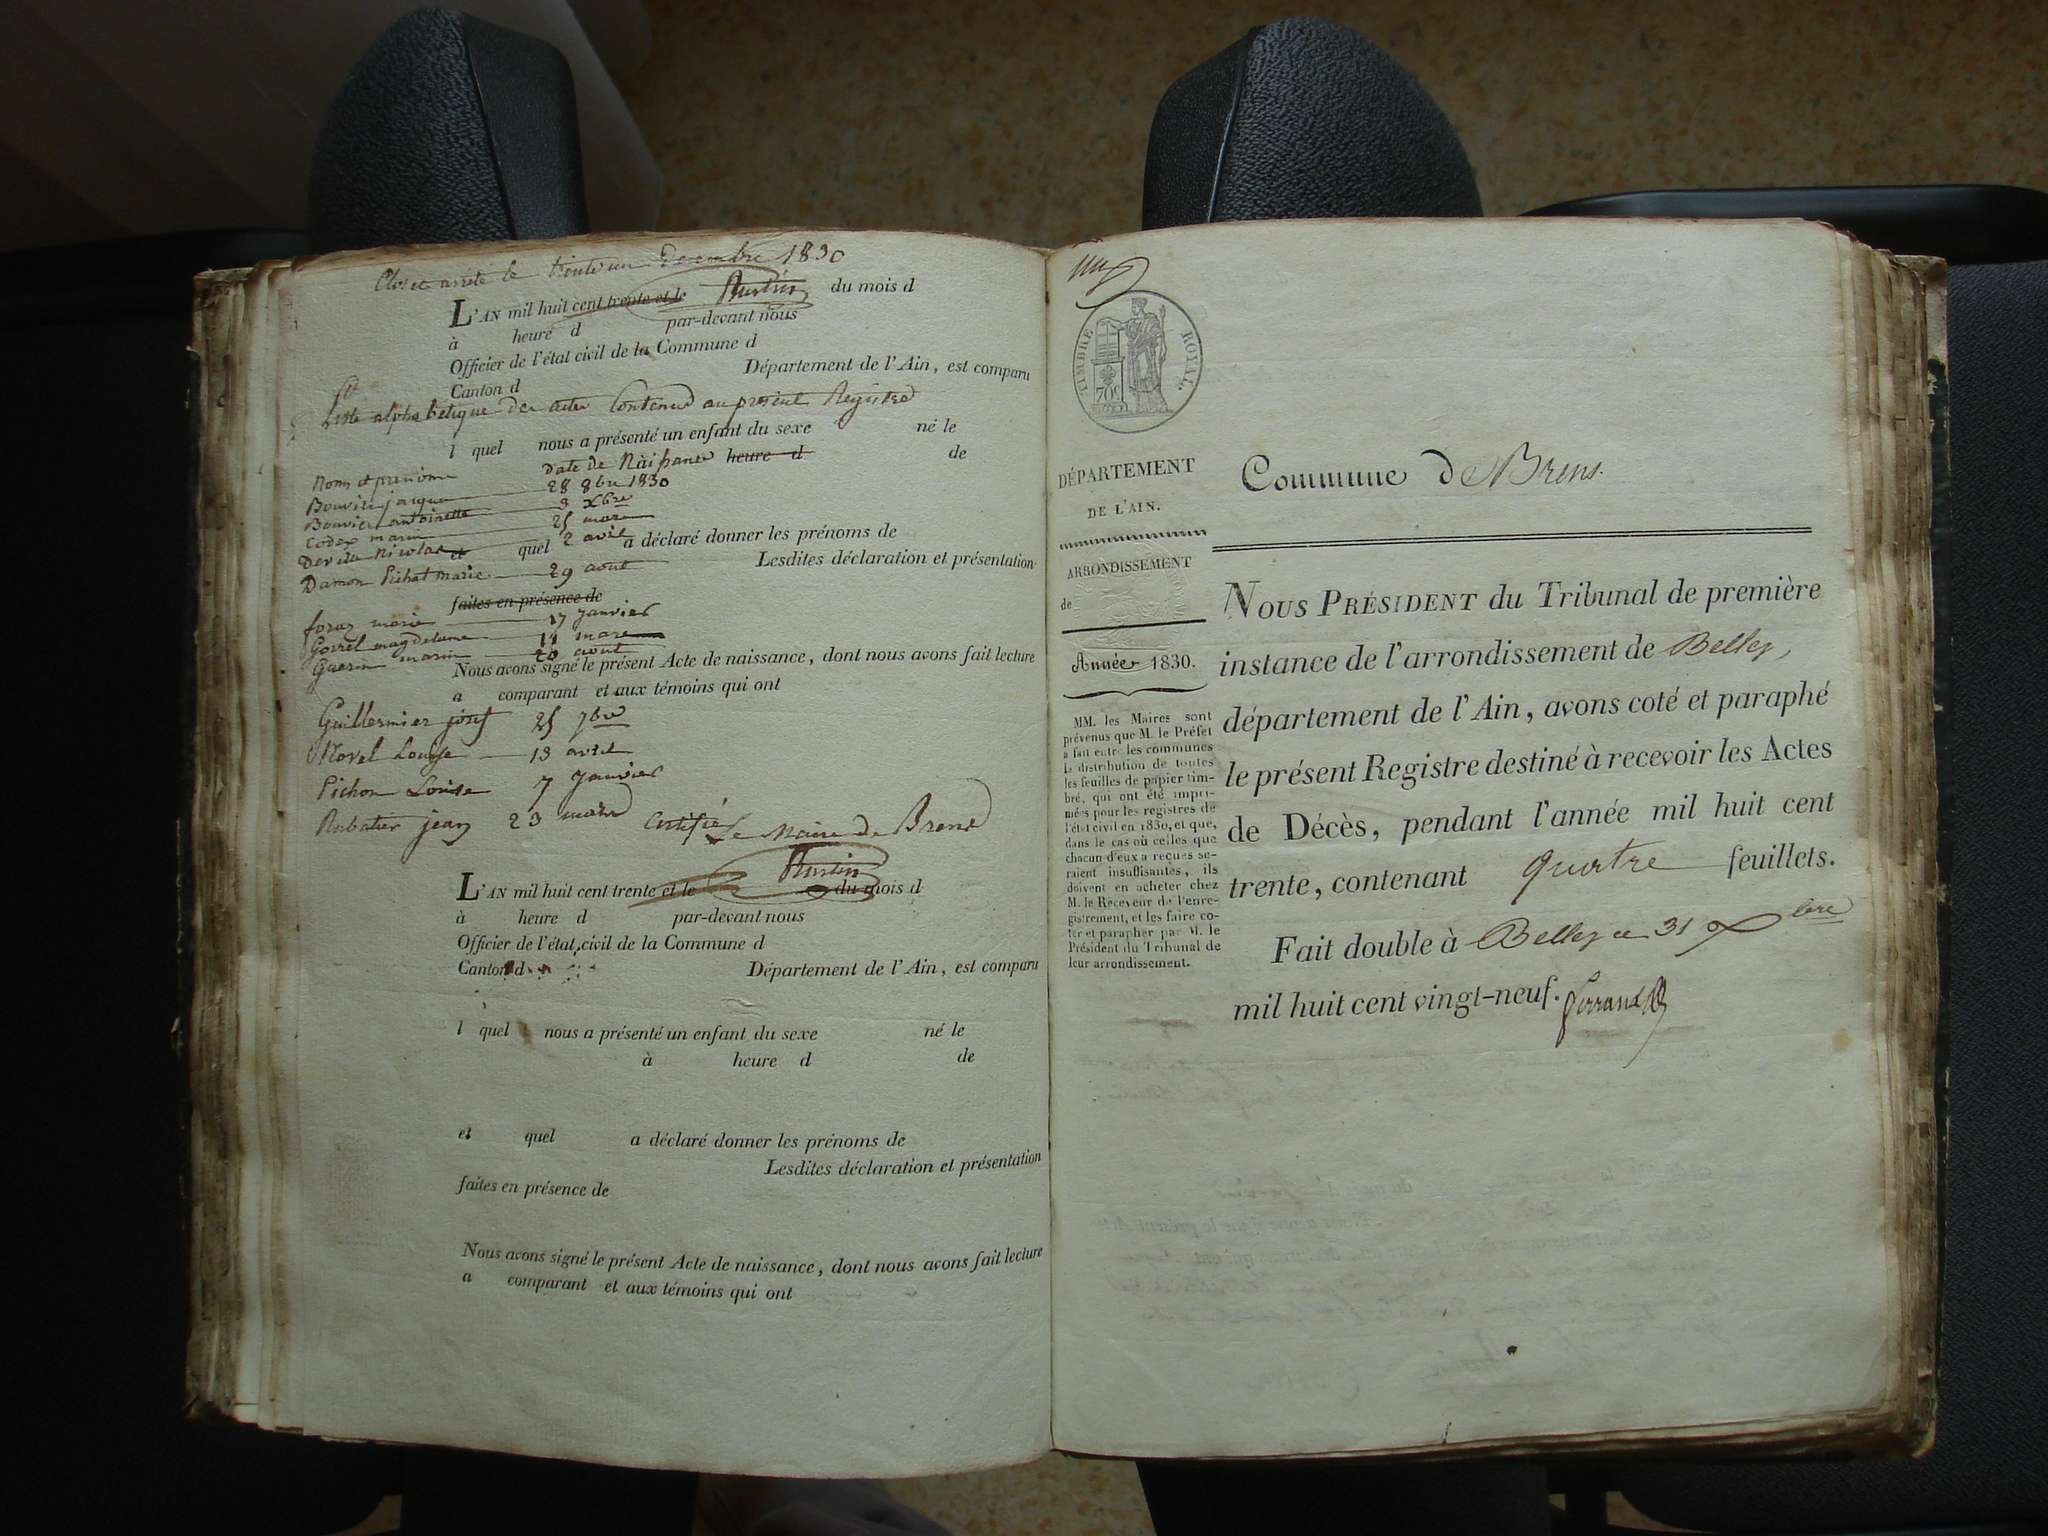 Clos et arrêté le trente un Decembre 1830
L'AN mil huit cent trente et le du mois d
à heure d par-devant nous
Officier de l'état civil de la Commune d
Canton d Département de l'Ain, est comparu
Liste alphabétique des actes Contenus au présent Registre
l quel nous a présenté un enfant du sexe né le
Noms et prenoms date de Naissance heure d de
Bouvier jacques 28 8bre 1830
Bouvier antoinette 3 Xbre
Codex marin 25 mars
Nicolas 2 avril
et quel a déclaré donner les prénoms de
Damon Pichat marie 29 aout
Lesdites déclaration et présentation
faites en présence de
foraz marie 17 Janvier
magdelaine 11 mars
Guerin marin 20 aout
Nous avons signé le présent Acte de naissance, dont nous avons fait lecture
a comparant et aux témoins qui ont
Guillermier josef 25 7bre
Morel Louise 13 avril
Pichon Louise 7 Janvier
Rubatier jean 23 mars certifié Le Maire de Brens
L'AN mil huit cent trente et le du mois d
à heure d par-devant nous
Officier de l'état civil de la Commune d
Canton d Département de l'Ain, est comparu
l quel nous a présenté un enfant du sexe né le
à heure d de
et quel a déclaré donner les prénoms de
Lesdites déclaration et présentation
faites en présence de
Nous avons signé le présent Acte de naissance, dont nous avons fait lecture
a comparant et aux témoins qui ont
TIMBRE ROYAL.
70c
DÉPARTEMENT
DE L'AIN.
ARRONDISSEMENT
de
Année 1830.
MM. les Maires sont
prévenus que M. le Préfet
a fait entre les communes
la distribution de toutes
les feuilles de papier tim-
bré, qui ont été impri-
mées pour les registres de
l'état civil en 1830, et que,
dans le cas où celles que
chacun d'eux a reçues se-
raient insuffisantes, ils
doivent en acheter chez
M. le Receveur de l'enre-
gistrement, et les faire co-
ter et parapher par M. le
Président du Tribunal de
leur arrondissement.
Commune de Brens.
NOUS PRÉSIDENT du Tribunal de première
instance de l'arrondissement de Belley,
département de l'Ain, avons coté et paraphé
le présent Registre destiné à recevoir les Actes
de Décès, pendant l'année mil huit cent
trente, contenant quatre feuillets.
Fait double à Belley ce 31 Xbre
mil huit cent vingt-neuf.